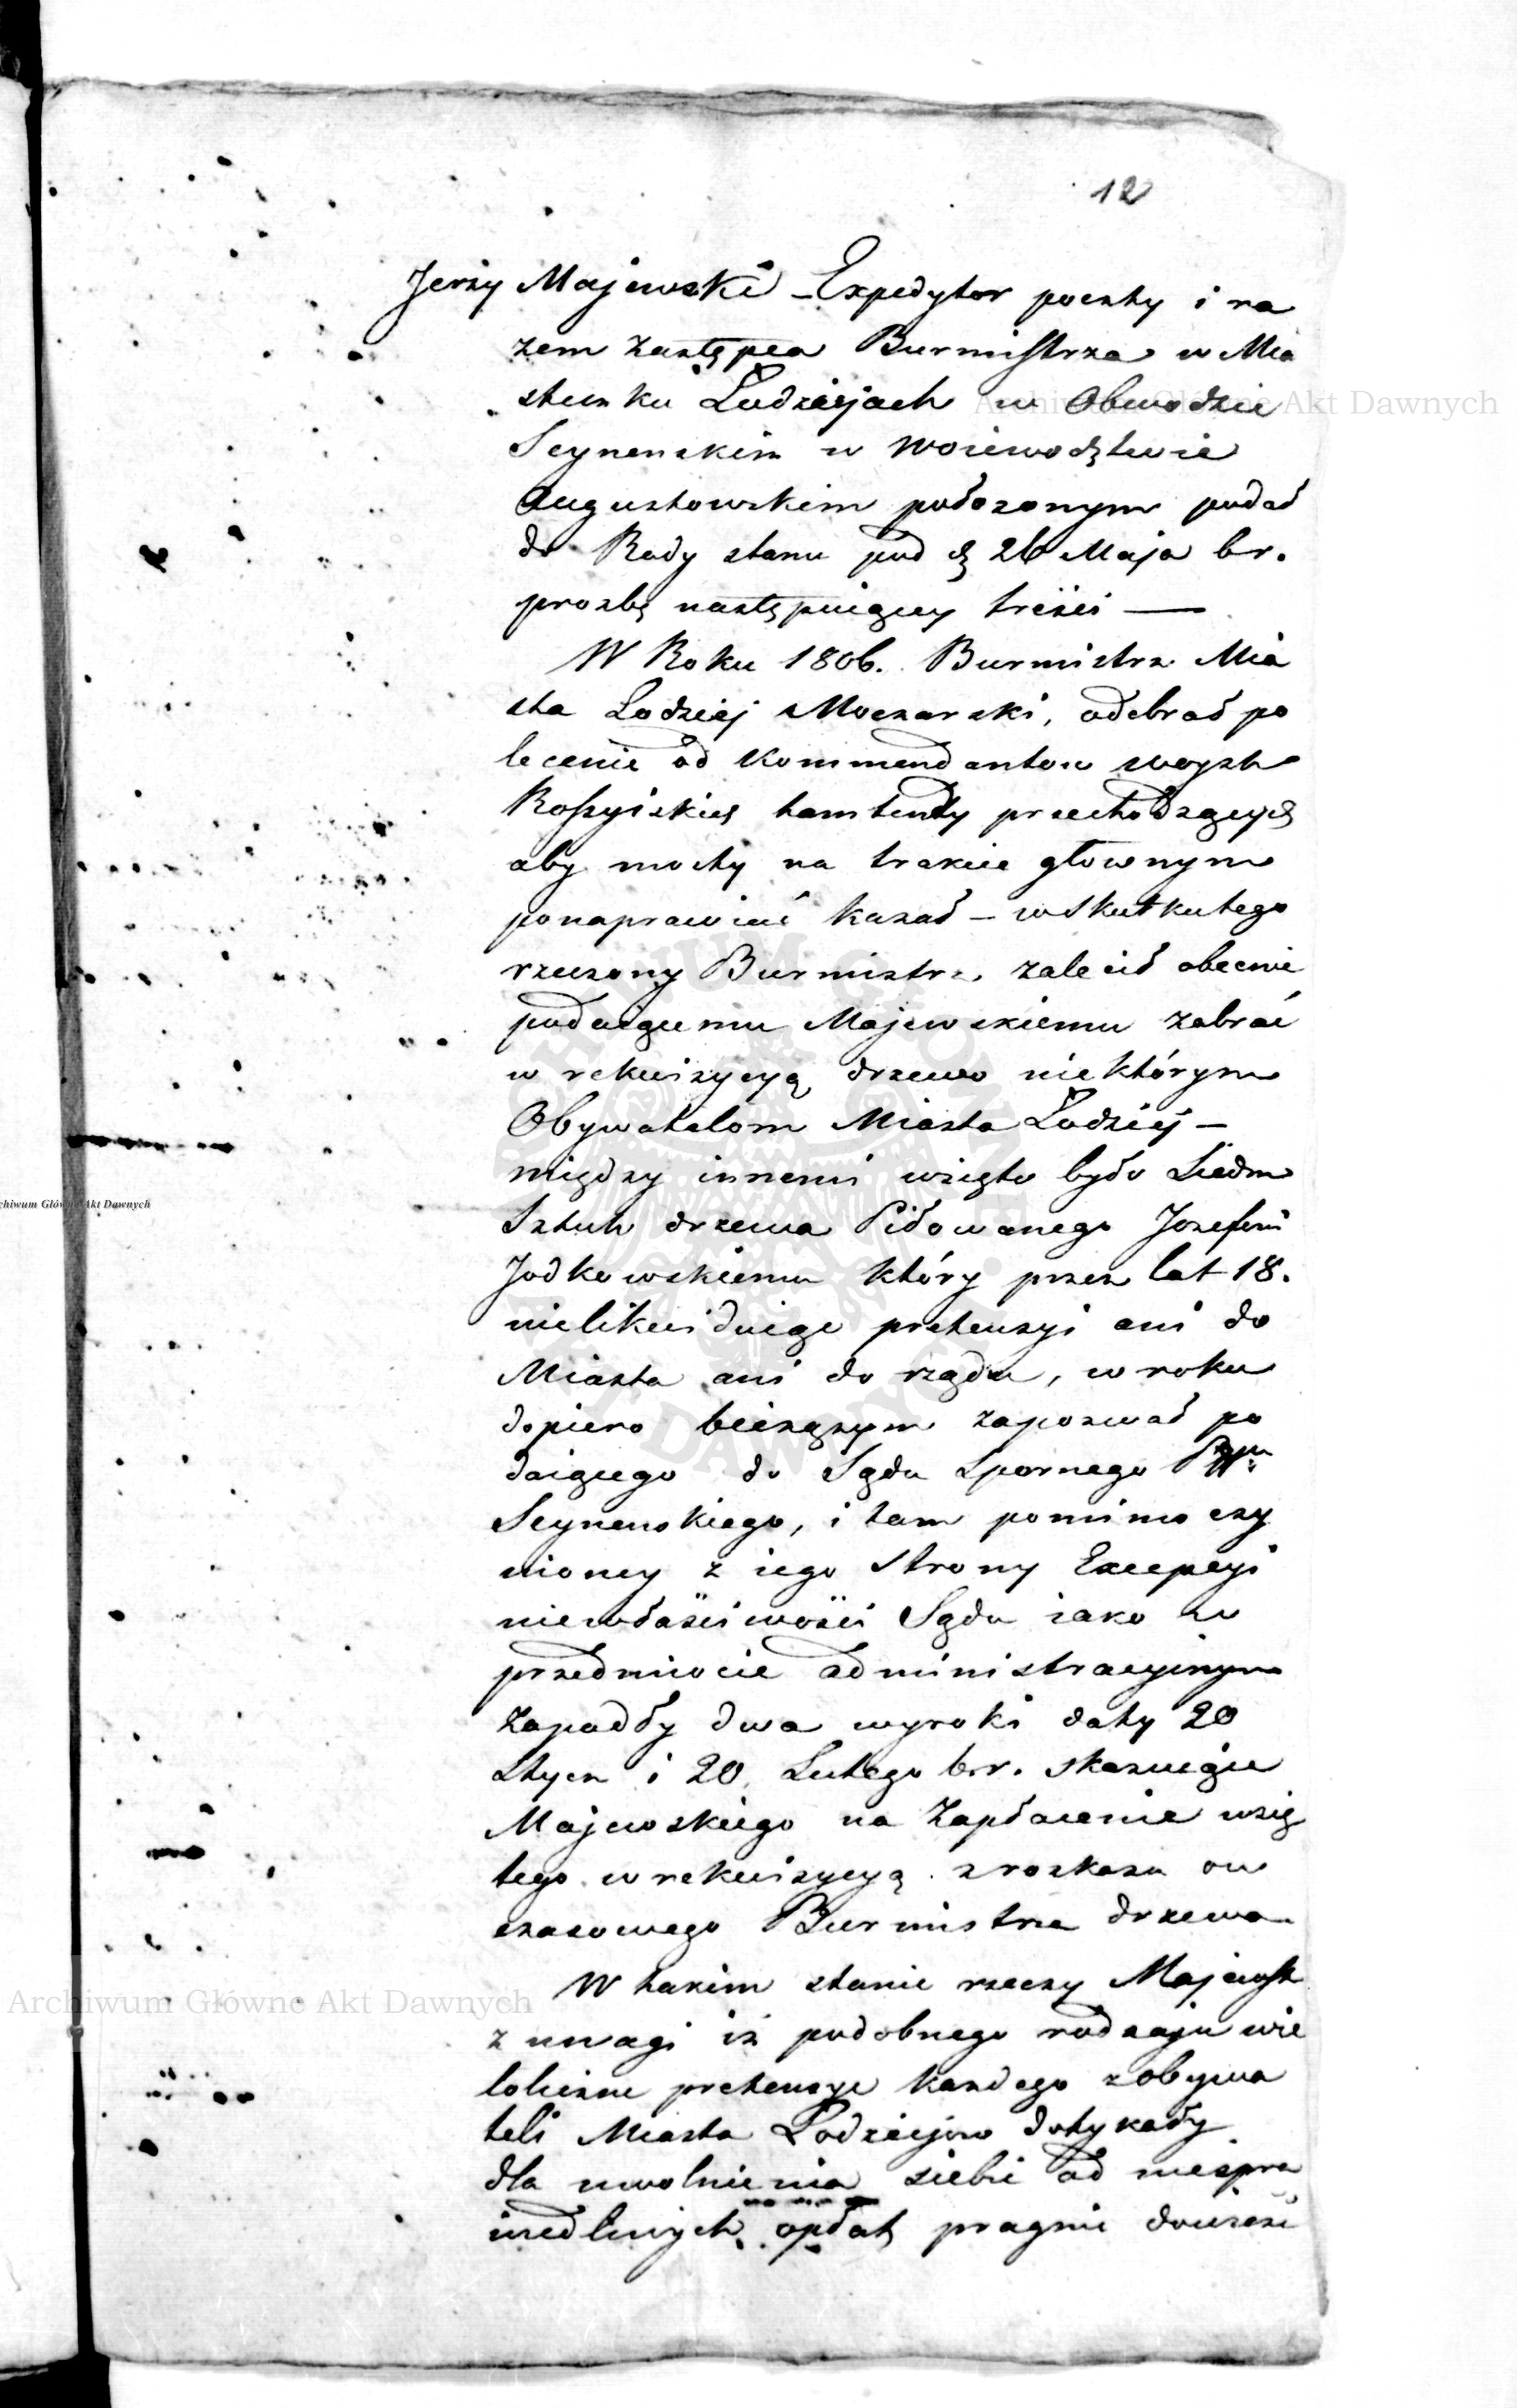 12
Jerzy Majewski Expedytor poczty i ra
zem Zastępca Burmistrza w Mia
steczku Łodziejach w Obwodzie
Seynenskim w Woiewodztwie
Augustowskim położonym podał
do Rady stanu pod d 26 Maja br.
prozbę następuiącey treści —
W Roku 1806. Burmistrz Mia
sta Lodziej Moczarski, odebrał po
lecenie od Kommendantow woysk
Rossyiskich tamtendy przechodzących
aby mosty na trakcie głownym
ponaprawiać kazał – w Skutku tego
rzeczony Burmistrz zalecił obecnie
podaiącemu Majewskiemu zabrać
w rekwizycyą drzewo niektórym
Obywatelom Miasta Łodziej –
między innemi wzięto było Siedm
Sztuk drzewa Piłowanego Jozefowi
Jodkowskiemu który przez lat 18.
nielikwiduiąc pretensyi ani do
Miasta ani do rządu, w roku
dopiero bieżązym zapozwał po
daiącego do Sądu Spornego
Seynenskiego, i tam pomimo czy
nioney z iego Strony Excepcyi
niewłaściwości Sądu iako w
przedmiocie administracyinym
zapadły dwa wyroki daty 20
Stycz i 20 Lutego br. skazuiące
Majewskiego na Zapłacenie wzię
tego w rekwizycyą z rozkazu ow
czasowego Burmistrza drzewa
W takim stanie rzeczy Majewsk
z uwagi iż podobnego rodzaju wie
loliczne pretensye każdego z obywa
teli Miasta Łodziejow dotykały
dla uwolnienia siebie od niespra
wiedliwych opłat pragnie dowieść
Archiwum Główne Akt Dawnych
Archiwum Główne Akt Dawnych
Archiwum Główne Akt Dawnych